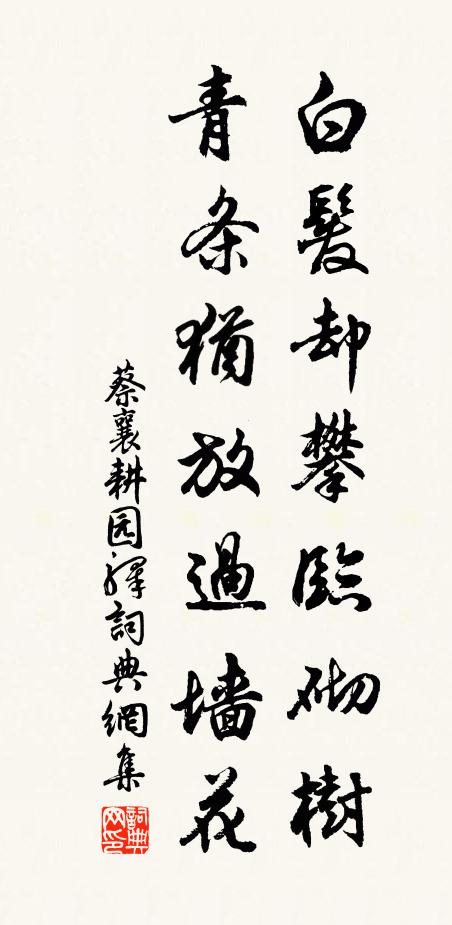 白髮却攀臨砌樹
青条猶放過墻花
蔡襄耕园驛詞典網集
詞典网印